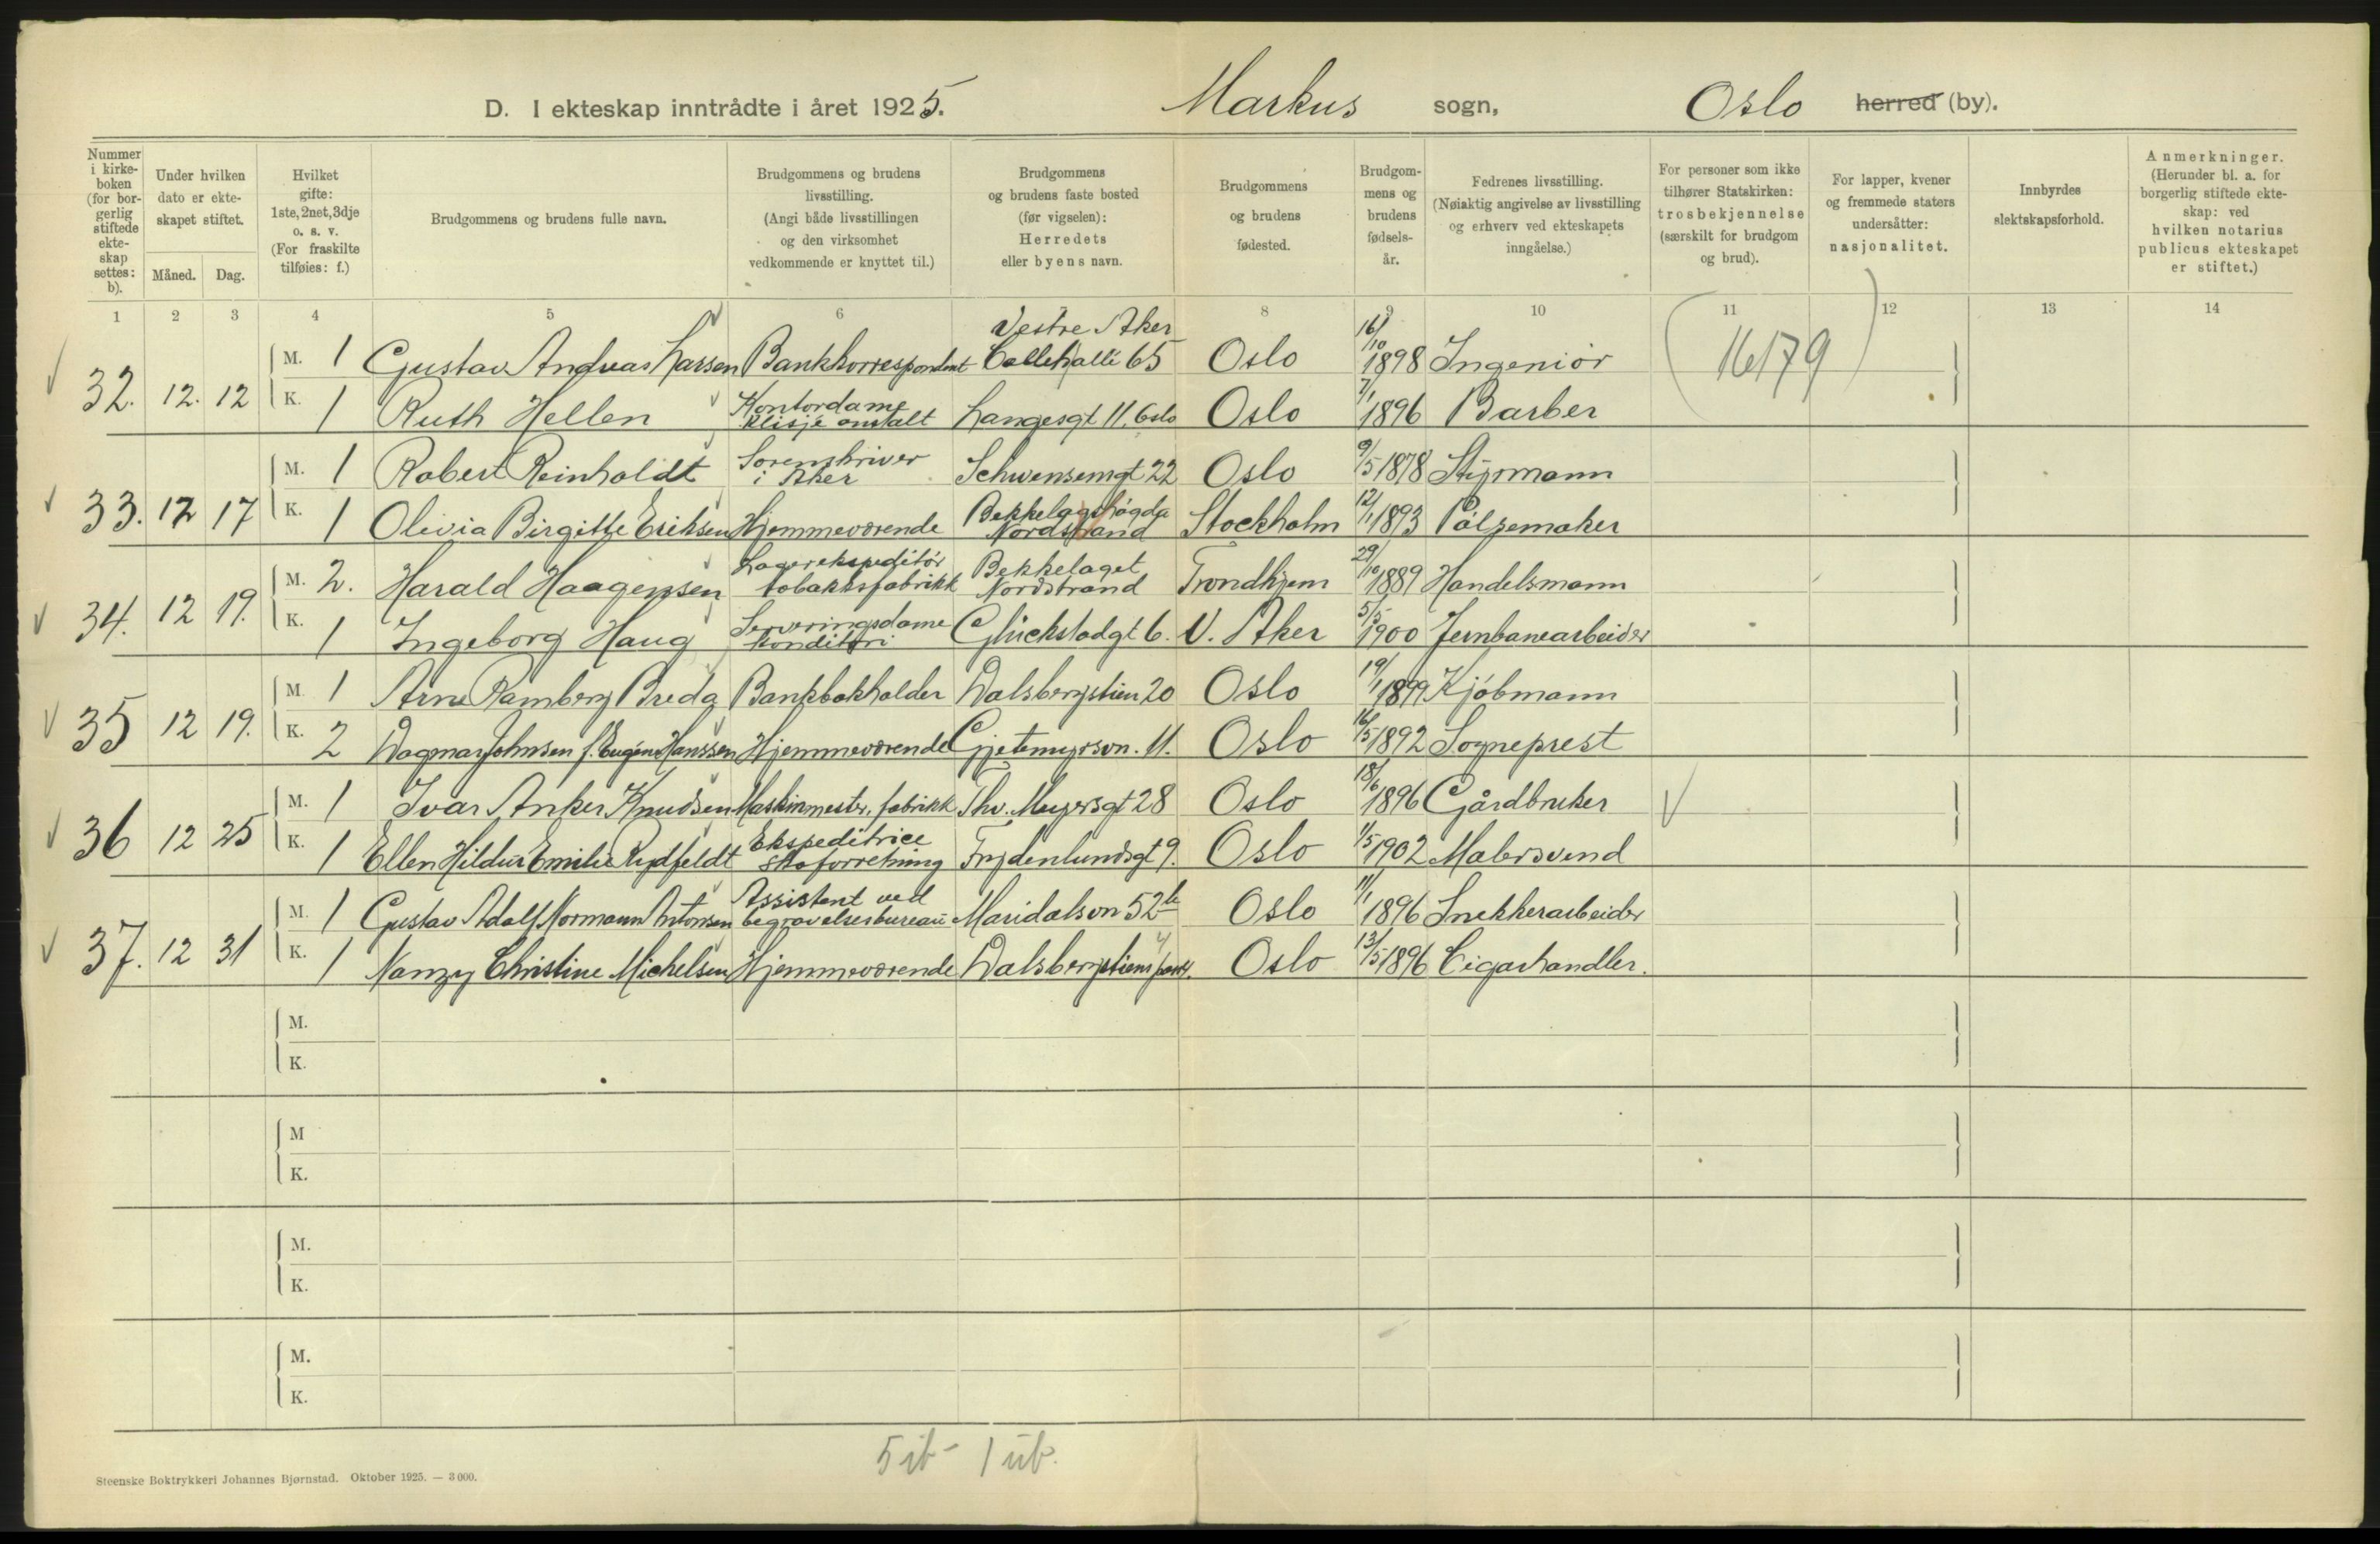 D. I ekteskap inntrådte i året 1925. Markus sogn, Oslo herred (by).
Nummer i kirkeboken (for borgerlig stiftede ekteskap settes: b).
Under hvilken dato er ekteskapet stiftet.
Måned. Dag.
Hvilket gifte: 1ste, 2net, 3dje o. s. v. (For fraskilte tilføies: f.)
Brudgommens og brudens fulle navn.
Brudgommens og brudens livsstilling. (Angi både livsstillingen og den virksomhet vedkommende er knyttet til.)
Brudgommens og brudens faste bosted (før vigselen): Herredets eller byens navn.
Brudgommens og brudens fødested.
Brudgommens og brudens fødselsår.
Fedrenes livsstilling. (Nøiaktig angivelse av livsstilling og erhverv ved ekteskapets inngåelse.)
For personer som ikke tilhører Statskirken: trosbekjennelse (særskilt for brudgom og brud).
For lapper, kvener og fremmede staters undersåtter: nasjonalitet.
Innbyrdes slektskapsforhold.
Anmerkninger. (Herunder bl. a. for borgerlig stiftede ekteskap: ved hvilken notarius publicus ekteskapet er stiftet.)
1 2 3 4 5 6 7 8 9 10 11 12 13 14
32. 12. 12 M. 1 Gustav Andreas Larsen Bankkorrespondent Vestre Aker 65 Oslo 16/10 1898 Ingeniör (16179)
K. 1 Ruth Hellen Kontordame Klisjé anstalt Langesgt 11. Oslo Oslo 7/1 1896 Barber
33. 12 17 M. 1 Robert Reinholdt Sorenskriver i Aker Schwensensgt 22 Oslo 9/5 1878 Styrmann
K. 1 Olivia Birgitte Eriksen Hjemmeværende Bekkelagshøgda Nordstrand Stockholm 12/1 1893 Pölsemaker
34. 12 19. M. 2. Harald Haagensen Lagerekspeditör tobakksfabrikk Bekkelaget Nordstrand Trondhjem 29/10 1889 Handelsmann
K. 1 Ingeborg Haug Serveringsdame Konditori Glückstadgt 6. V. Aker 5/5 1900 Jernbanearbeider
35 12 19. M. 1 Arne Ramberg Breda Bankbokholder Dalsbergstien 20 Oslo 19/1 1899 Kjöbmann
K. 2 Dagmar Johnsen f. Eugenie Hanssen Hjemmeværende Gjetemyrsvn. 11. Oslo 16/5 1892 Sogneprest
36 12 25 M. 1 Ivar Anker Knudsen Maskinmester, fabrikk Thv. Meyersgt 28 Oslo 18/6 1896 Gårdbruker
K. 1 Ellen Hildur Emilie Rydfeldt Ekspeditrice skoforretning Frydenlundsgt 9. Oslo 1/5 1902 Malersvend
37. 12 31 M. 1 Gustav Adolf Normann Antonsen Assistent ved begravelsesbureau Maridalsvn 52 b Oslo 11/1 1896 Snekkerarbeider
K. 1 Nanzy Christine Michelsen Hjemmeværende Dalsbergstien Oslo 13/5 1896 Cigarhandler.
M.
K.
M
K.
M.
K.
M.
K.
5 ib - 1 ub.
Steenske Boktrykkeri Johannes Bjørnstad. Oktober 1925. — 3000.